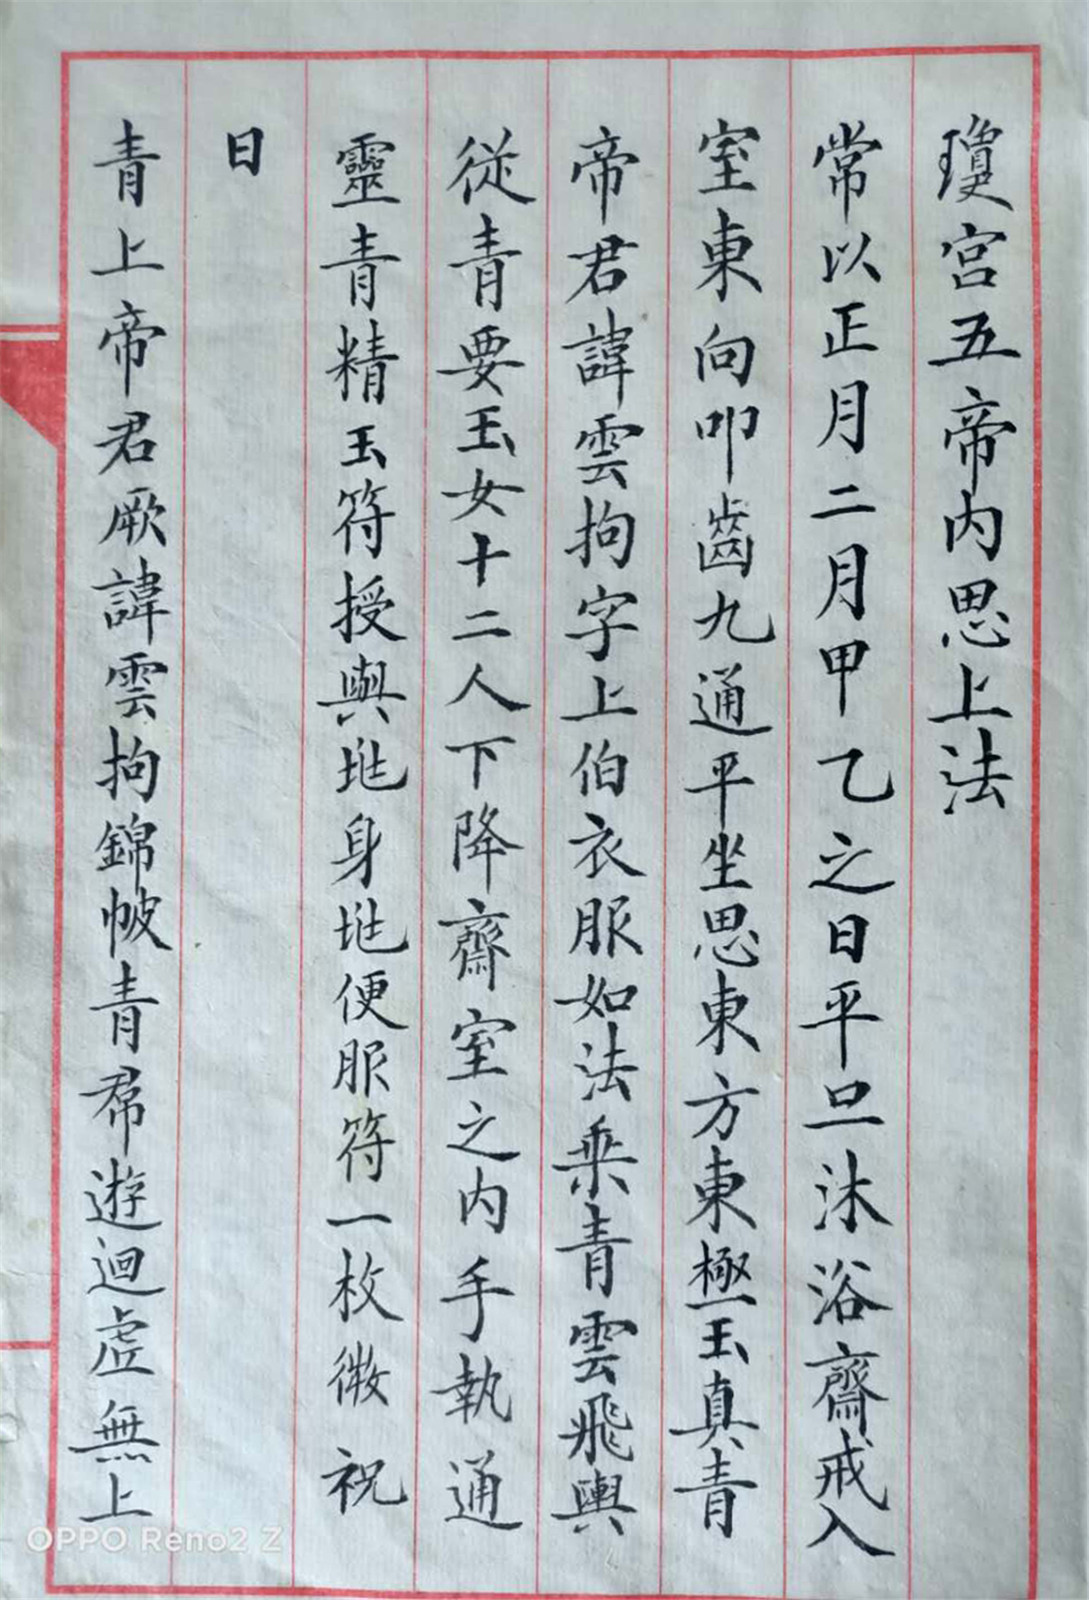 瓊宮五帝內思上法
常以正月二月甲乙之日平旦沐浴齋戒入
室東向叩齒九通平坐思東方東極玉真青
帝君諱雲拘字上伯衣服如法乘青雲飛輿
從青要玉女十二人下降齋室之內手執通
靈青精玉符授與兆身兆便服符一枚微祝
曰
青上帝君厥諱雲拘錦帔青帬遊迴虛無上
OPPO Reno2 Z